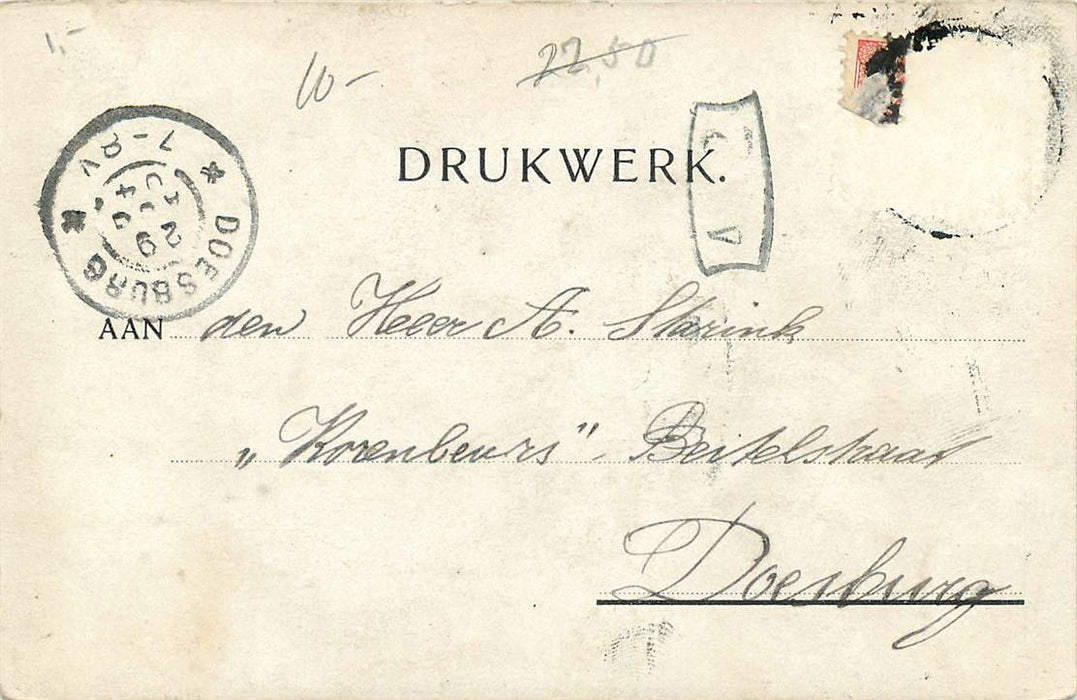 1,-
10-
22,50
DRUKWERK.
DOESBURG
7-8V
AAN den Heer A. Starink
„Korenbeurs". Beitelstraat
Doesburg